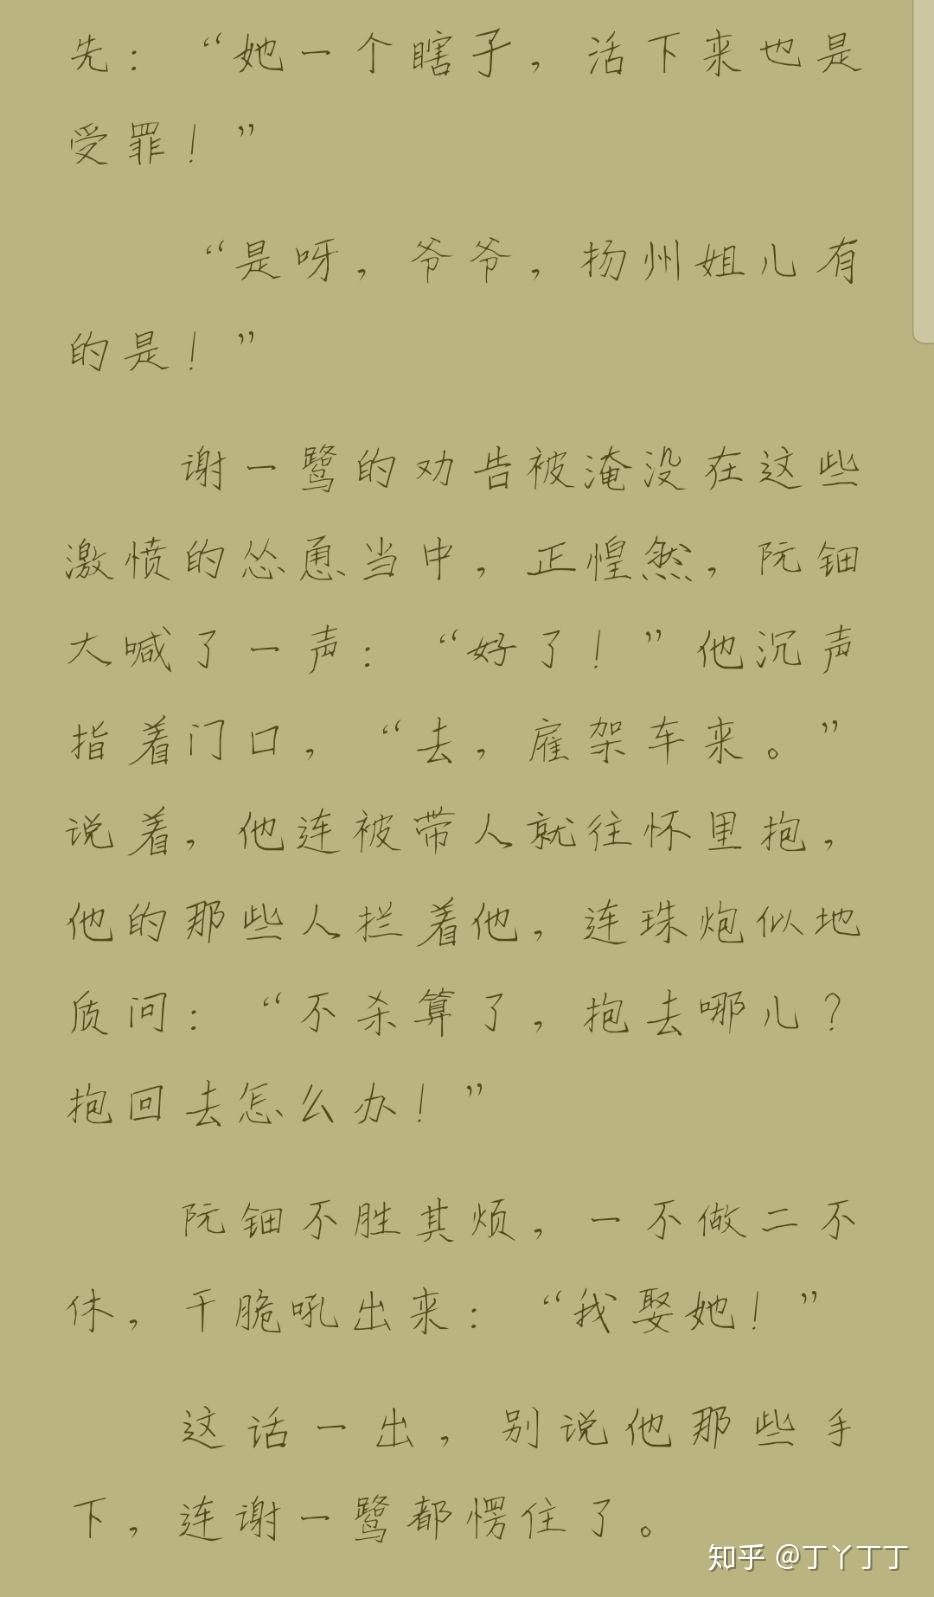 先：“她一个瞎子，活下来也是
受罪！”
“是呀，爷爷，扬州姐儿有
的是！”
谢一鹭的劝告被淹没在这些
激愤的怂恿当中，正惶然，阮钿
大喊了一声：“好了！”他沉声
指着门口，“去，雇架车来。”
说着，他连被带人就往怀里抱，
他的那些人拦着他，连珠炮似地
质问：“不杀算了，抱去哪儿？
抱回去怎么办！”
阮钿不胜其烦，一不做二不
休，干脆吼出来：“我娶她！”
这话一出，别说他那些手
下，连谢一鹭都愣住了。
知乎 @丁丫丁丁